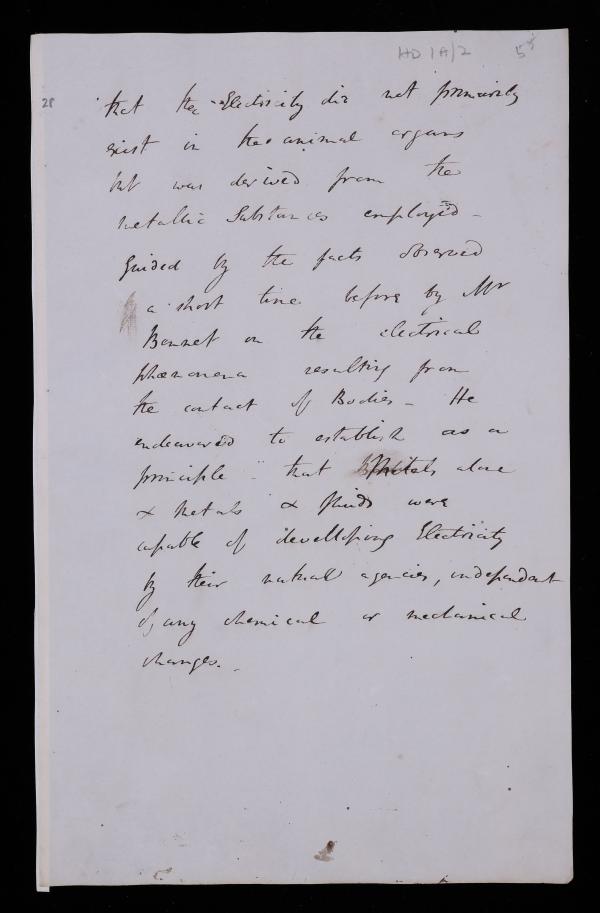 HD 1A/2 55
28
that the Electricity did not primarily
exist in the animal organs
but was derived from the
metallic Substances employed -
Guided by the facts observed
a short time before by Mr
Bennet on the electrical
phænomena resulting from
the contact of Bodies - He
endeavored to establish as a
principle - that Metals alone
& Metals & fluids were
capable of developing Electricity
by their natural agencies, independent
of any chemical or mechanical
changes. -